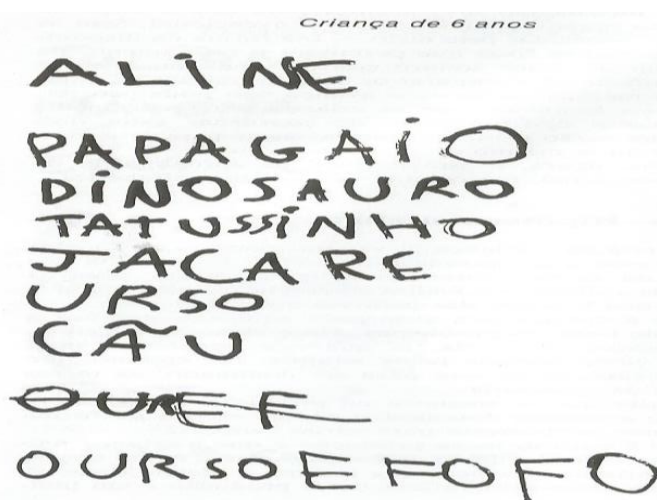 Criança de 6 anos
ALiNE
PAPAGAiO
DiNOSAURO
TATUSSiNHO
JACARE
URSO
CÃU
OUREF
OURSOE FOFO